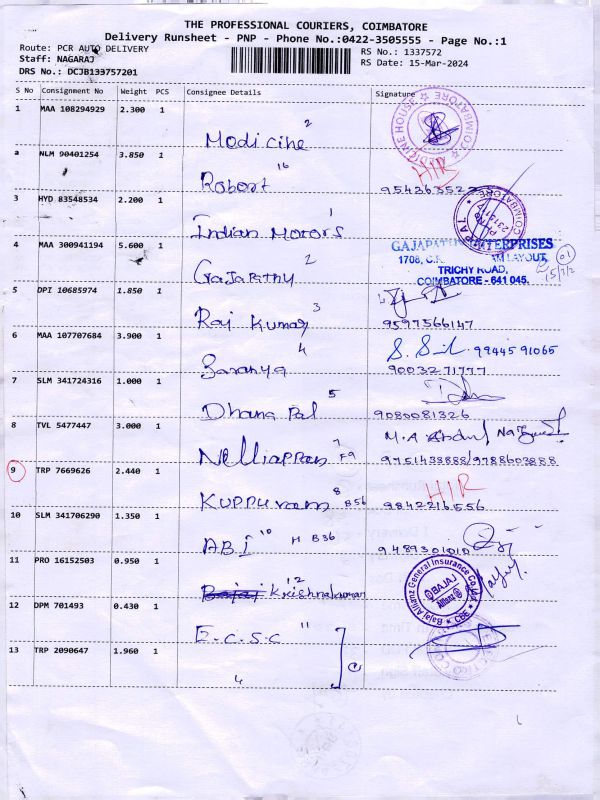 THE PROFESSIONAL COURIERS, COIMBATORE
Delivery Runsheet - PNP - Phone No.:0422-3505555 - Page No.:1
Route: PCR AUTO DELIVERY RS No.: 1337572
Staff: NAGARAJ RS Date: 15-Mar-2024
DRS No.: DCJB133757201
S No Consignment No Weight PCS Consignee Details Signature
1 MAA 108294929 2.300 1
Modicine 2
a NLM 90401254 3.850 1
HIR
Robert 16 954363522
3 HYD 83548534 2.200 1
Indian Motors 1
4 MAA 300941194 5.600 1 GAJAPATHY ENTERPRISES
1708,
Gajapathy 2 TRICHY ROAD,
COIMBATORE - 641 045.
5 DPI 10685974 1.850 1
Raj Kumar 3 9597566147
6 MAA 107707684 3.900 1
99445 91065
Saranya 4 9003271777
7 SLM 341724316 1.000 1
Dhana Pal 5 9080081326
8 TVL 5477447 3.000 1
Nelliappan 7 F9 9751433888/9788603888
9 TRP 7669626 2.440 1 HIR
Kuppuram 8 B56 9842216556
10 SLM 341706290 1.350 1
A.B.I 10 H B36 9489301010
11 PRO 16152503 0.950 1
Bajaj Krishnakumar 12
Bajaj Allianz General Insurance Co.Ltd. BAJAJ Allianz CBE
12 DPM 701493 0.430 1
E.C.S.C 11
13 TRP 2090647 1.960 1
4